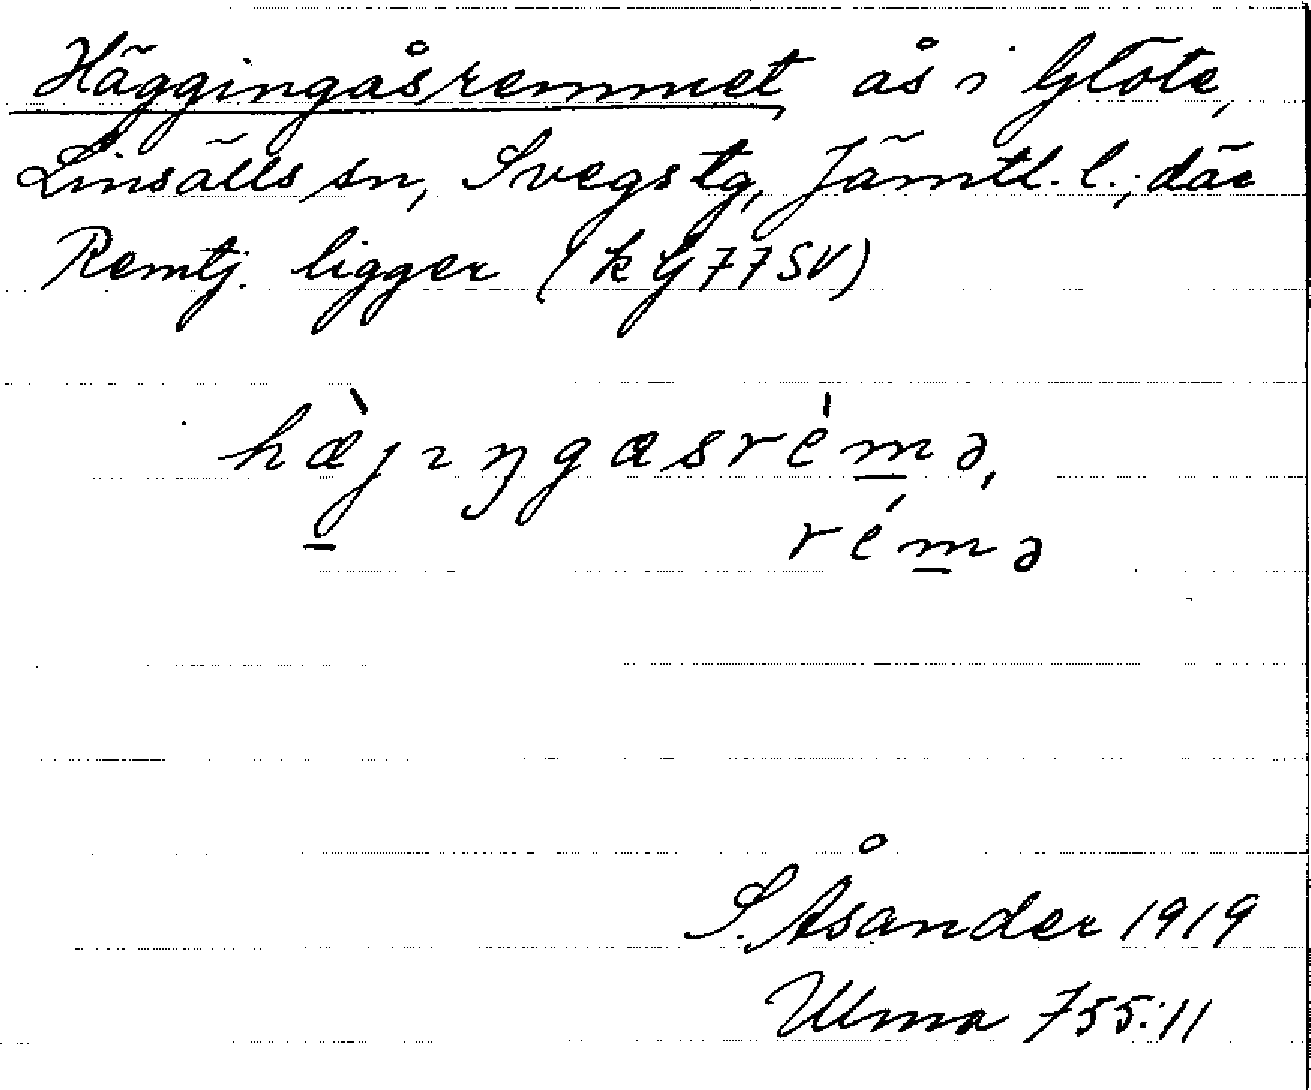 Häggingåsremmet, ås i Glöte,
Linsälls sn, Svegs tg, Jämtl. l., där
Remtj. ligger (k G 77 SV)
hæ̀ɟıŋgasrém̲ə,
rém̲ə
S. Åsander 1919
Ulma 755:11